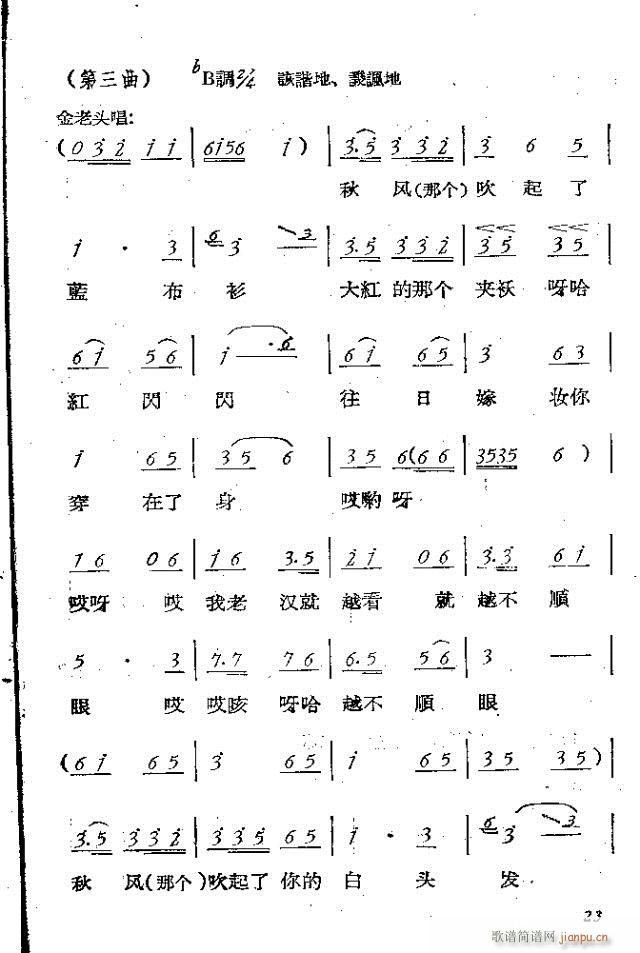 （第三曲） ♭B調2/4 詼諧地、譏諷地
金老头唱:
(0 3 2 1 1 | 6156 1) | 3.5 3 3 2 | 3 6 5 |
秋 风(那个)吹 起 了
1 · 3 | 6 3 3 | 3.5 3 3 2 | 3 5 3 5 |
藍 布 衫 大紅的那个 夹袄 呀哈
6 1 5 6 | 1 · 6 | 6 1 6 5 | 3 6 3 |
紅 閃 閃 往 日 嫁 妆你
1 6 5 | 3 5 6 | 3 5 6(6 6 | 3535 6) |
穿 在了 身 哎喲呀
1 6 0 6 | 1 6 3.5 | 2 1 0 6 | 3.3 6 1 |
哎呀 哎 我老 汉就 越看 就 越不 順
5 · 3 | 7.7 7 6 | 6.5 5 6 | 3 — |
眼 哎 哎咳 呀哈 越不 順 眼
(6 1 6 5 | 3 6 5 | 1 6 5 | 3 5 3 5) |
3.5 3 3 2 | 3 3 5 6 5 | 1 · 3 | 6 3 3 |
秋 风(那个)吹起了 你的 白 头 发
23
歌谱简谱网 jianpu.cn